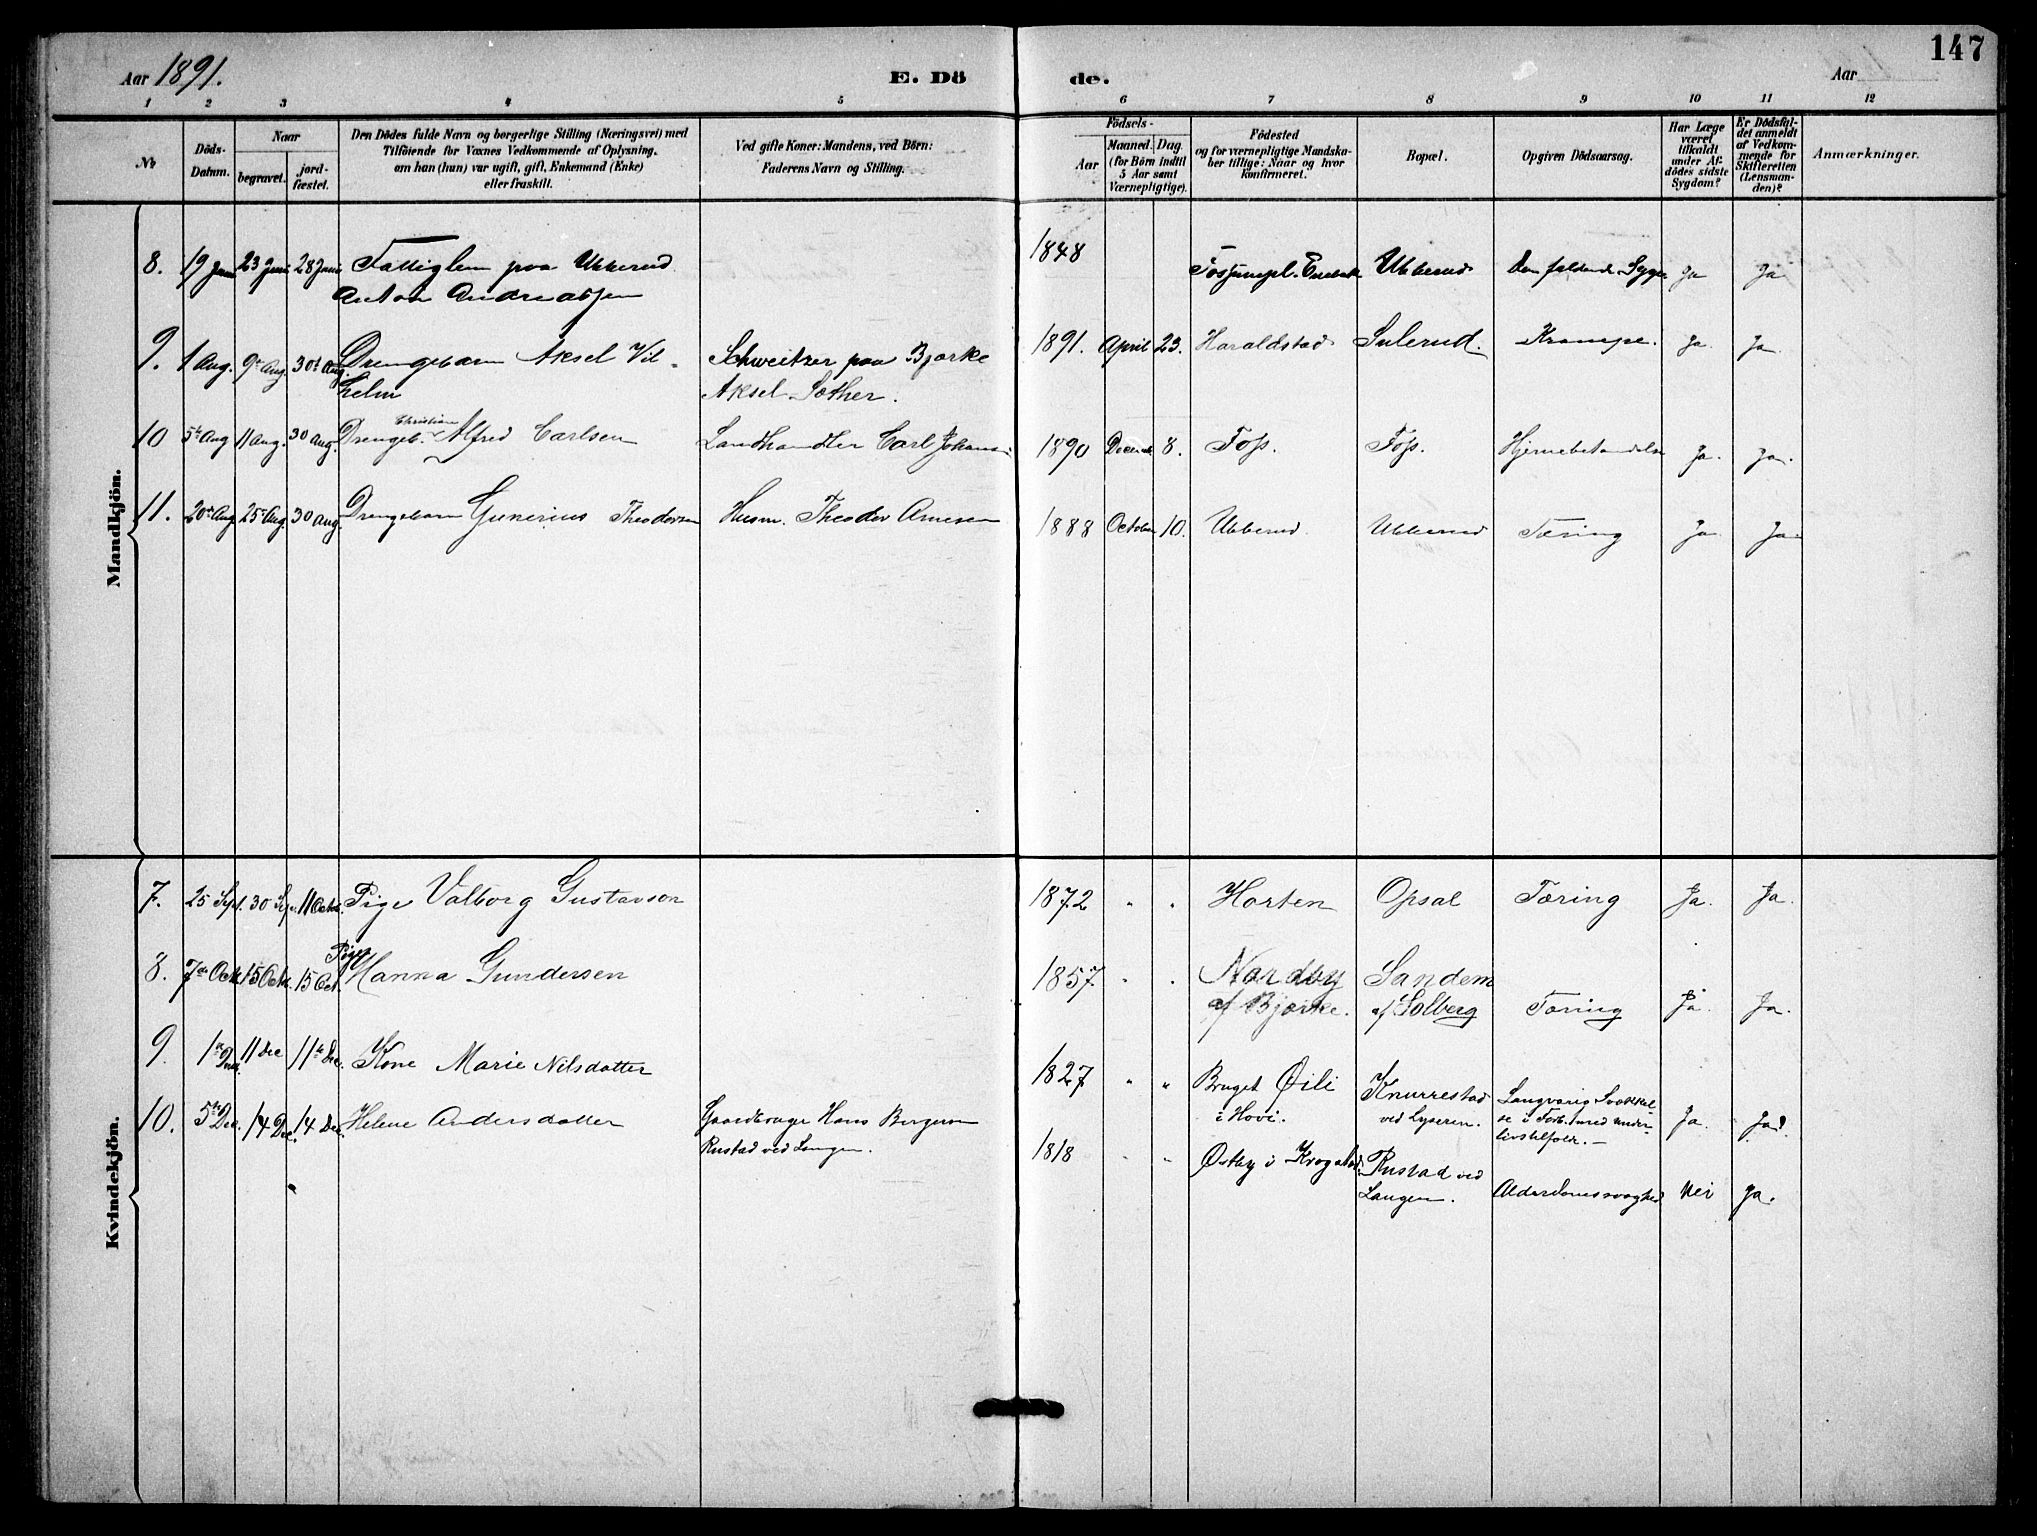 147
Aar 1891. E. Dö de. Aar
1 2 3 4 5 6 7 8 9 10 11 12
No
Döds-
Datum.
Naar
begravet.
jord-
fæstet.
Den Dödes fulde Navn og borgerlige Stilling (Næringsvei) med
Tilföiende for Voxnes Vedkommende af Oplysning,
om han (hun) var ugift, gift, Enkemand (Enke)
eller fraskilt.
Ved gifte Koner: Mandens, ved Börn:
Faderens Navn og Stilling.
Födsels-
Aar
Maaned. Dag
(for Börn indtil
5 Aar samt
Værnepligtige).
Födested
og for værnepligtige Mandska-
ber tillige: Naar og hvor
konfirmeret.
Bopæl.
Opgiven Dödsaarsag.
Har Læge
været
tilkaldt
under Af-
dödes sidste
Sygdom?
Er Dödsfal-
det anmeldt
af Vedkom-
mende for
Skifteretten
(Lensman-
den)?
Anmærkninger.
Mandkjön.
8. 19 Juni 23 Juni 28 Juni Fattiglem paa Ubberud 1848 Ubberud Den faldende Syge Ja Ja
Anton Andreassen
9. 1 Aug. 9 Aug. 30 Aug. Drengebarn Aksel Vil- Schweitzer paa Bjørke 1891. April 23. Haraldstad Sulerud. Krampe. Ja. Ja.
helm Aksel Sæther.
Christian
10 5te Aug 11 Aug. 30 Aug. Drengeb. Alfred Carlsen Landhandler Carl Johans. 1890 Decemb. 8. Foss. Foss. Hjernebetændelse Ja. Ja.
11. 20de Aug 25 Aug. 30 Aug. Drengebarn Gunerius Theodorsen Husm. Theodor Arnesen 1888 October 10. Ubberud Ubberud Tæring Ja. Ja.
Kvindekjön.
7. 25 Sept. 30 Sep. 11 Octb. Pige Valborg Gustavson 1872 " " Horten Opsal Tæring Ja. Ja.
Pige
8. 7de Octb. 15 Octb. 15 Oct. Hanna Gundersen 1857 " " Nordby Sandem
af Bjørke. af Solberg Tæring Ja. Ja.
9. 1ste Decb. 11 Dec 11te Dec. Kone Marie Nilsdatter 1827 " " Bruget Øili Knurrestad Langvarig Svækkel-
i Hovi. ved Lyseren. se i Forb. med under-
livstilfælde. Ja. Ja.
10. 5te Dec. 14 Dec. 14 Dec. Helene Andersdatter Gaardbruger Hans Bergersen 1818 " " Østby i Krogstad. Rustad ved
Rustad ved Langen. Langen. Alderdomssvaghed Nei Ja.